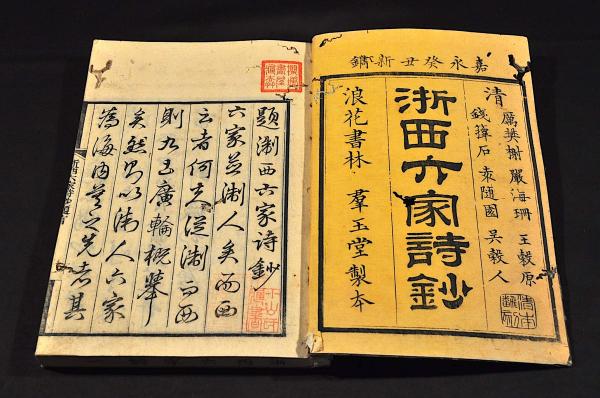 嘉永癸丑新鐫
清
厲樊榭 嚴海珊 王榖原
錢籜石 袁隨園 吳榖人
浙西六家詩鈔
浪花書林 羣玉堂製本
題淛西六家詩鈔
六家並淛人矣而西
云者何 從淛而西
則 已廣輪概舉
矣然 以淛人六家
為海內莫之先者其